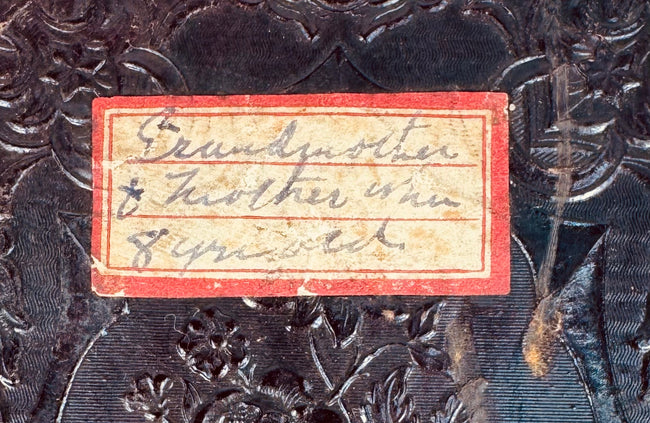 Grandmother
& Mother when
8 yrs old.